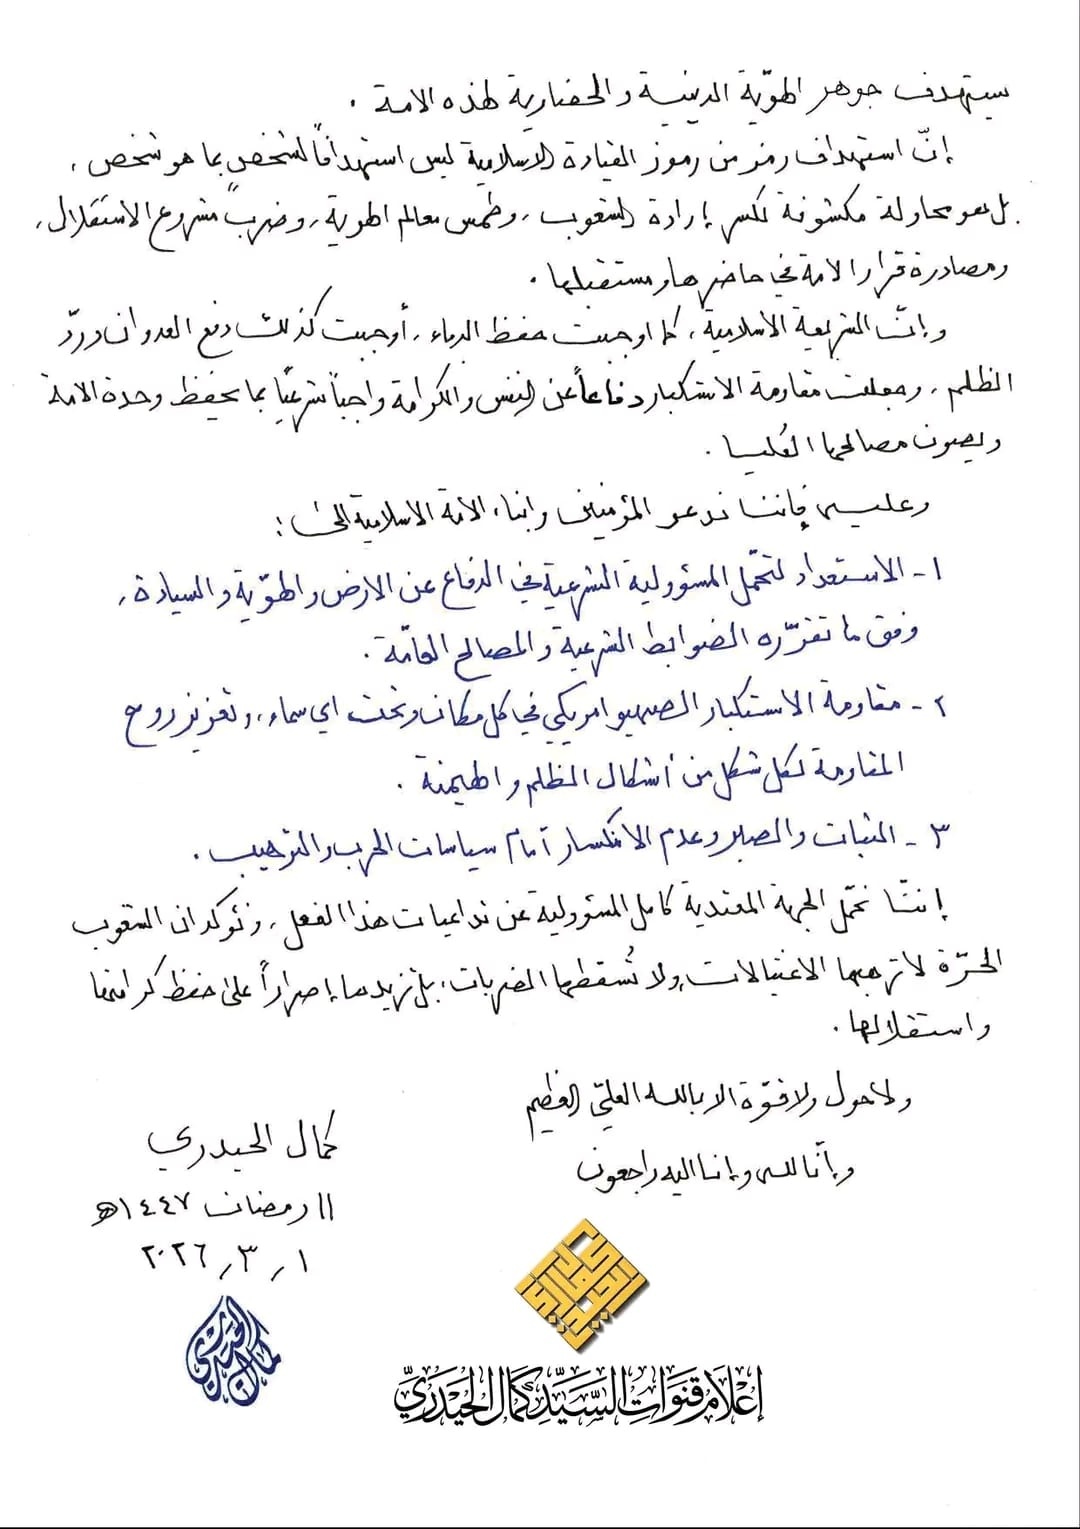 يستهدف جوهر الهويّة الدينية والحضارية لهذه الامة .
إنّ استهداف رمز من رموز القيادة الاسلامية ليس استهدافاً لشخص بما هو شخص ,
بل هو محاولة مكشوفة لكسر إرادة الشعوب , وطمس معالم الهوية , وضرب مشروع الاستقلال ,
ومصادرة قرار الامة في حاضرها ومستقبلها .
وإنّ الشريعة الاسلامية , كما اوجبت حفظ الدماء , أوجبت كذلك دفع العدوان وردّ
الظلم , وجعلت مقاومة الاستكبار دفاعاً عن النفس والكرامة واجباً شرعيّاً بما يحفظ وحدة الامة
ويصون مصالحها العُليا .
وعليه فإننا ندعو المؤمنين وابناء الامة الاسلامية إلى :
١ - الاستعداد لتحمّل المسؤولية الشرعية في الدفاع عن الارض والهوّية والسيادة ,
وفق ما تقرّره الضوابط الشرعية والمصالح العامّة .
٢ - مقاومة الاستكبار الصهيوامريكي في كل مكان وتحت اي سماء , وتعزيز روح
المقاومة لكل شكل من أشكال الظلم والهيمنة .
٣ - الثبات والصبر وعدم الانكسار أمام سياسات الحرب والترهيب .
إننّا نحمّل الجهة المعتدية كامل المسؤولية عن تداعيات هذا الفعل , ونؤكد ان الشعوب
الحرّة لا ترهبها الاغتيالات , ولا تُسقطها الضربات , بل تزيدها إصراراً على حفظ كرامتها
واستقلالها .
ولا حول ولا قوّة الا بالله العليّ العظيم
وإنّا لله وإنا اليه راجعون
كمال الحيدري
١١ رمضان ١٤٤٧هـ
١ , ٣ , ٢٠٢٦
كمال الحيدري
إعلام قنوات السَّيِّد كَمال الحَيْدَريّ